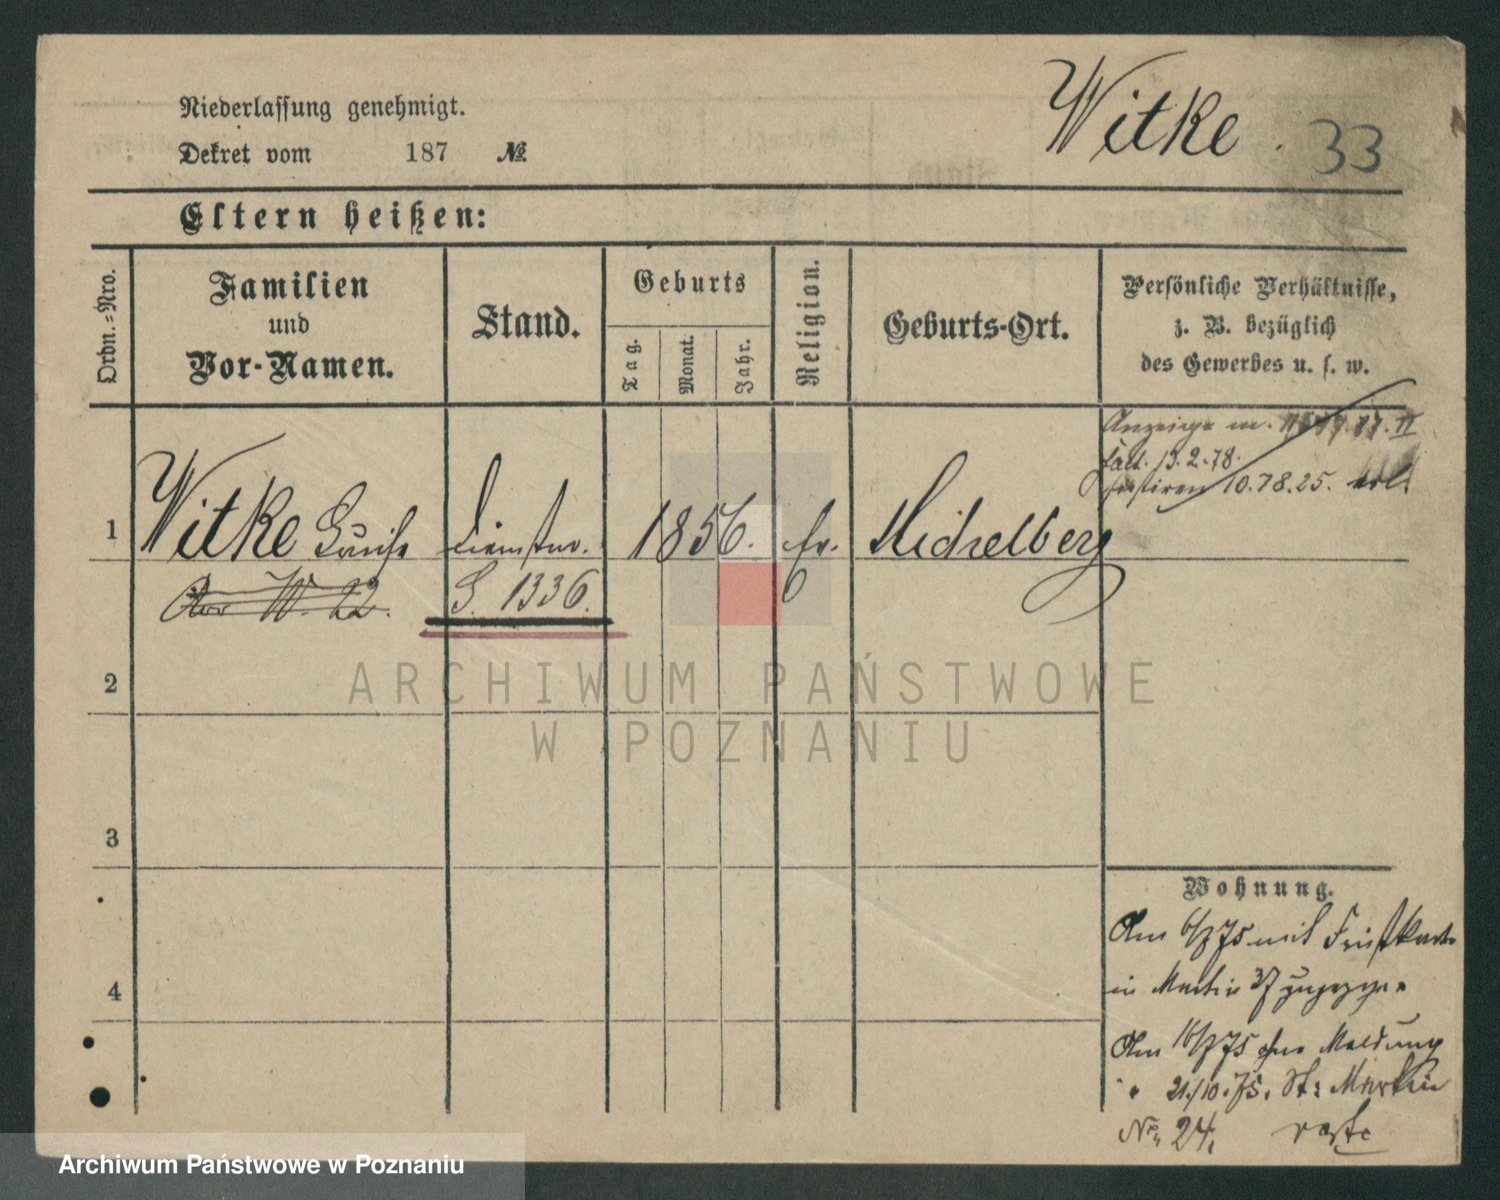 Witke. 33
Niederlassung genehmigt.
Dekret vom 187 №
Eltern heißen:
Ordn.-Nro.
Familien
und
Vor-Namen.
Stand.
Geburts
Tag.
Monat.
Jahr.
Religion.
Geburts-Ort.
Persönliche Verhältnisse,
z. B. bezüglich
des Gewerbes u. s. w.
Anzeige
13.2.78.
10.78.25.
1 Witke Louise 1856. ev. Michelberg
W. 22. S. 1336.
2
3
4
Wohnung.
Am 6/7 75 mit
in Martin 37
Am 16/7 75 ohne Meldung
" 21/10.75. St: Martin
No. 24.
ARCHIWUM PAŃSTWOWE
W POZNANIU
Archiwum Państwowe w Poznaniu